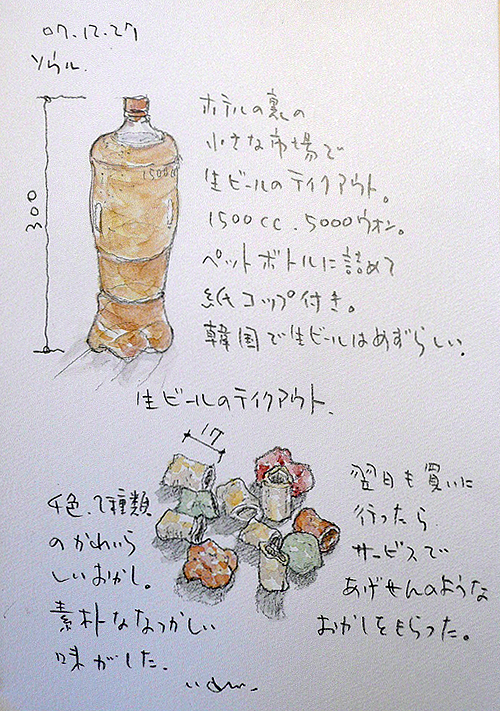 07.12.27
ソウル.
300
1500cc
ホテルの裏の
小さな市場で
生ビールのテイクアウト。
1500cc.5000ウオン。
ペットボトルに詰めて
紙コップ付き。
韓国で生ビールはめずらしい.
生ビールのテイクアウト.
17
4色.2種類
のかわいら
しいおかし。
素朴ななつかしい
味がした.
翌日も買いに
行ったら
サービスで
あげせんのような
おかしをもらった。